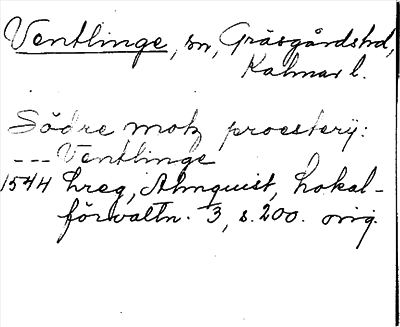 Ventlinge, sn, Gräsgårdshd,
Kalmar l.
Södre motz proestery:
--- Ventlinge
1544 Lreg, Almquist, Lokal-
förvaltn. 3, s. 200. orig.